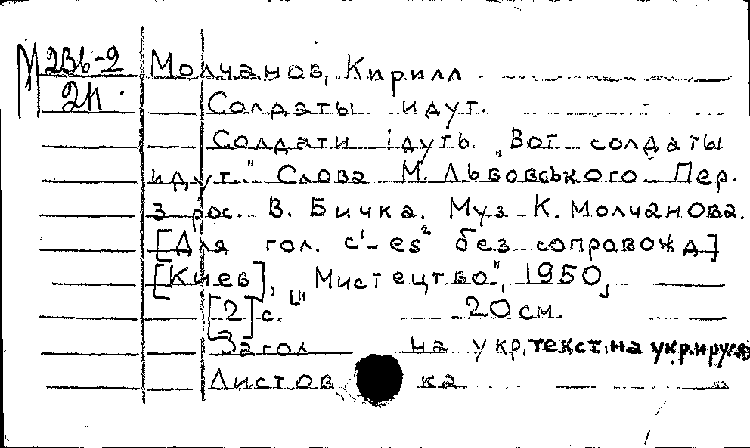 М 2Зв-2 Молчанов, Кирилл
2Н. Солдаты идут.
Солдати ідуть. „Вот солдаты
идут." Слова М. Львовського. Пер.
з рос. В. Бичка. Муз. К. Молчанова.
[Для гол. c'-es² без соправожд.]
[Киев], "Мистецтво", 1950,
[2] с. 20 см.
Загол на укр, текст, на укр. и рус. яз
Листов ка